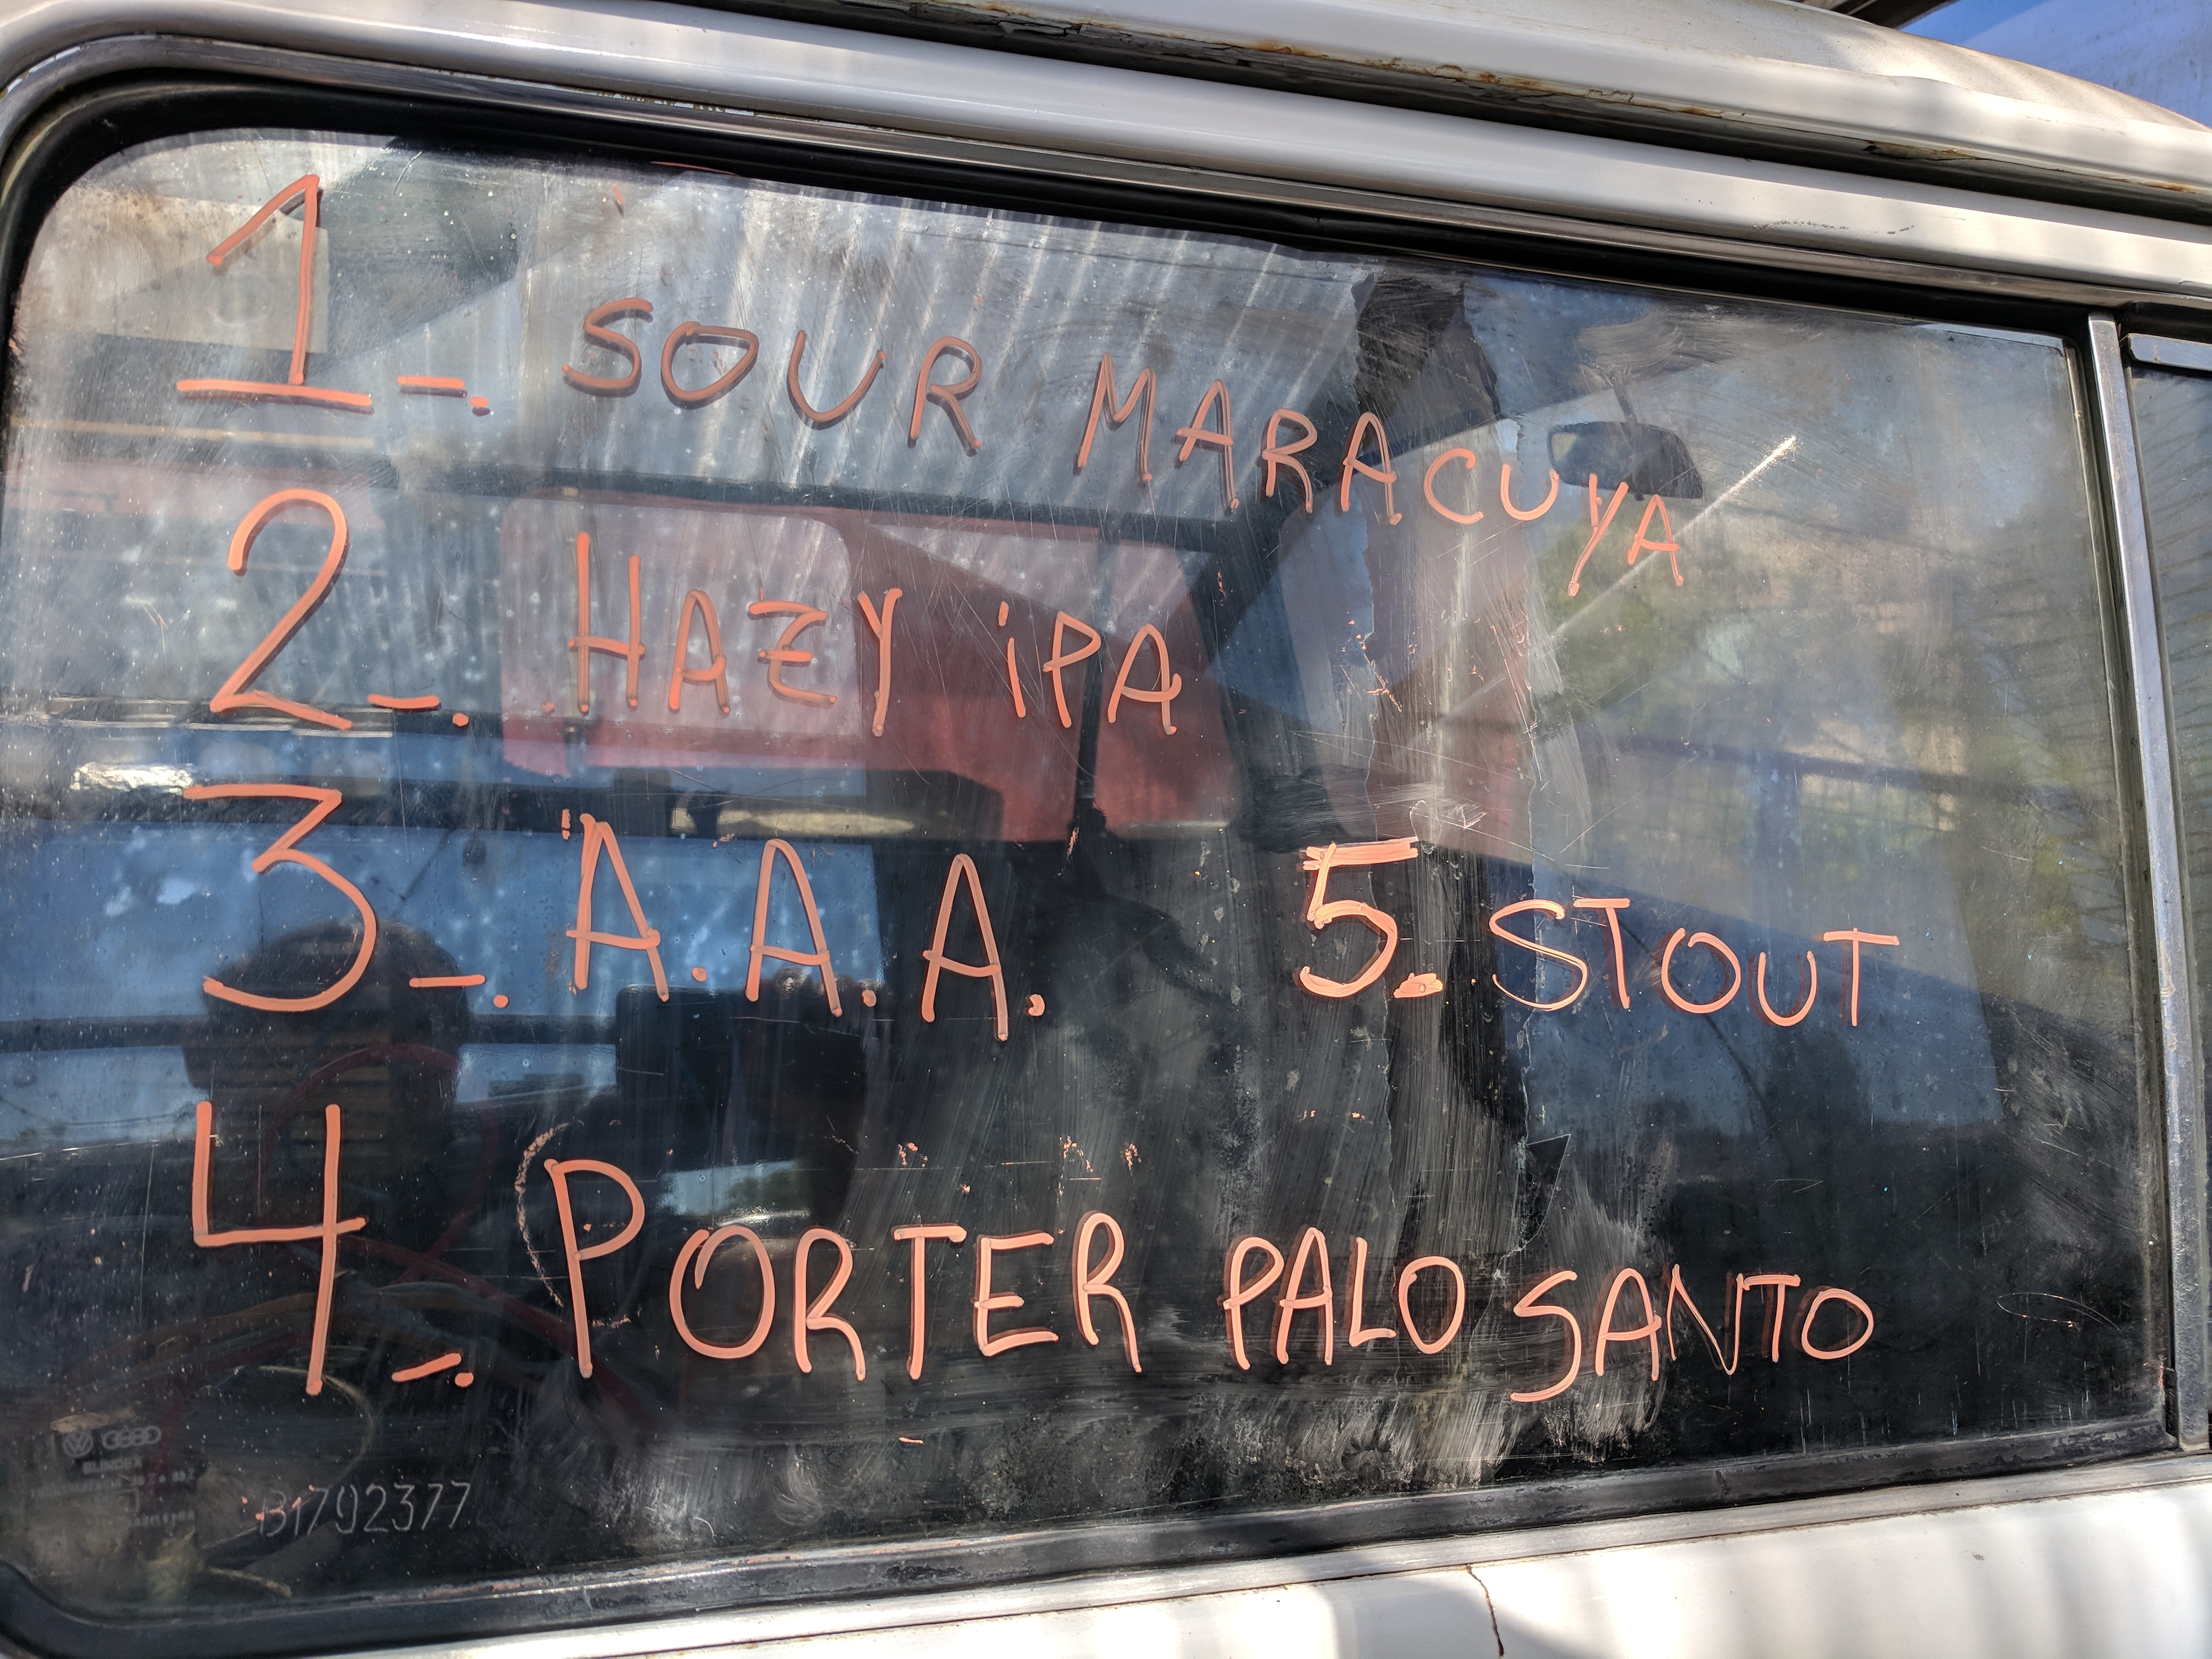 1_. SOUR MARACUYA
2_. HAZY iPA
3_. A.A.A.
5. STOUT
4_. PORTER PALO SANTO
B1792377